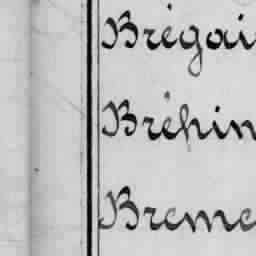 Brégai
Bréhin
Breme